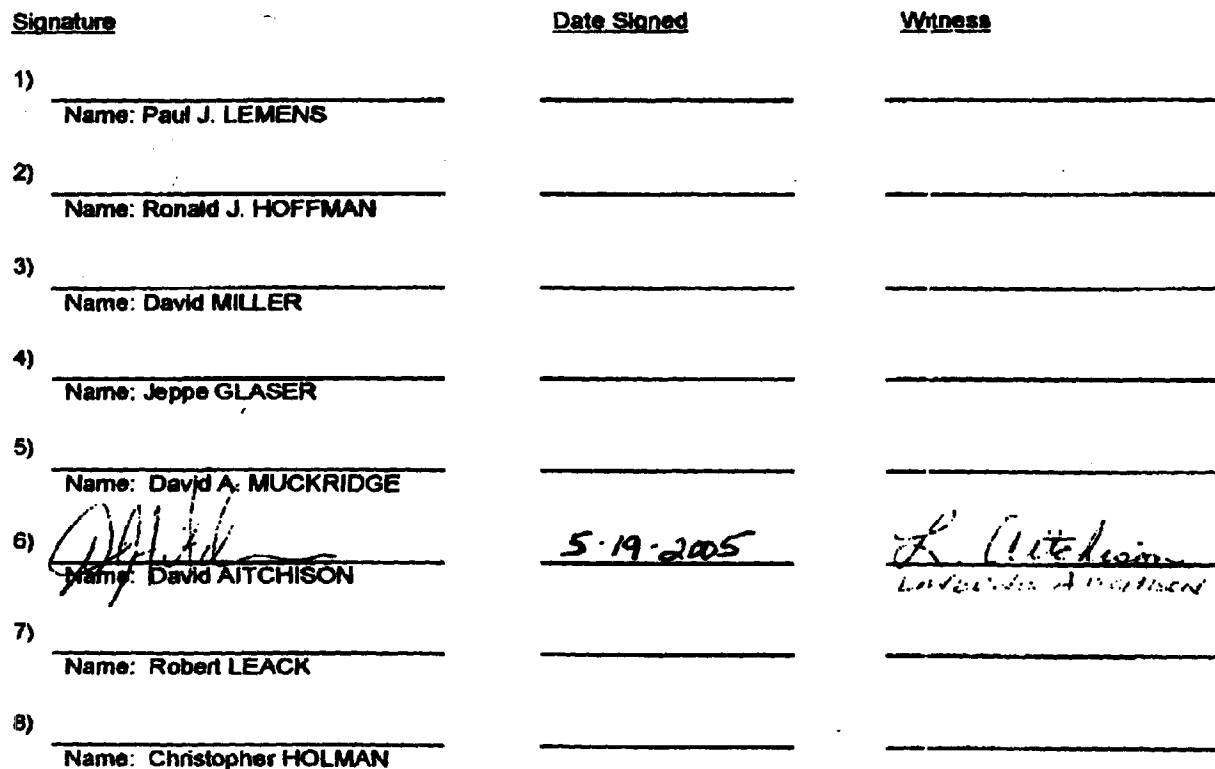 Signature Date Signed Witness
1)
Name: Paul J. LEMENS
2)
Name: Ronald J. HOFFMAN
3)
Name: David MILLER
4)
Name: Jeppe GLASER
5)
Name: David A. MUCKRIDGE
6) 5-19-2005 L. Aitchison
Name: David AITCHISON
7)
Name: Robert LEACK
8)
Name: Christopher HOLMAN